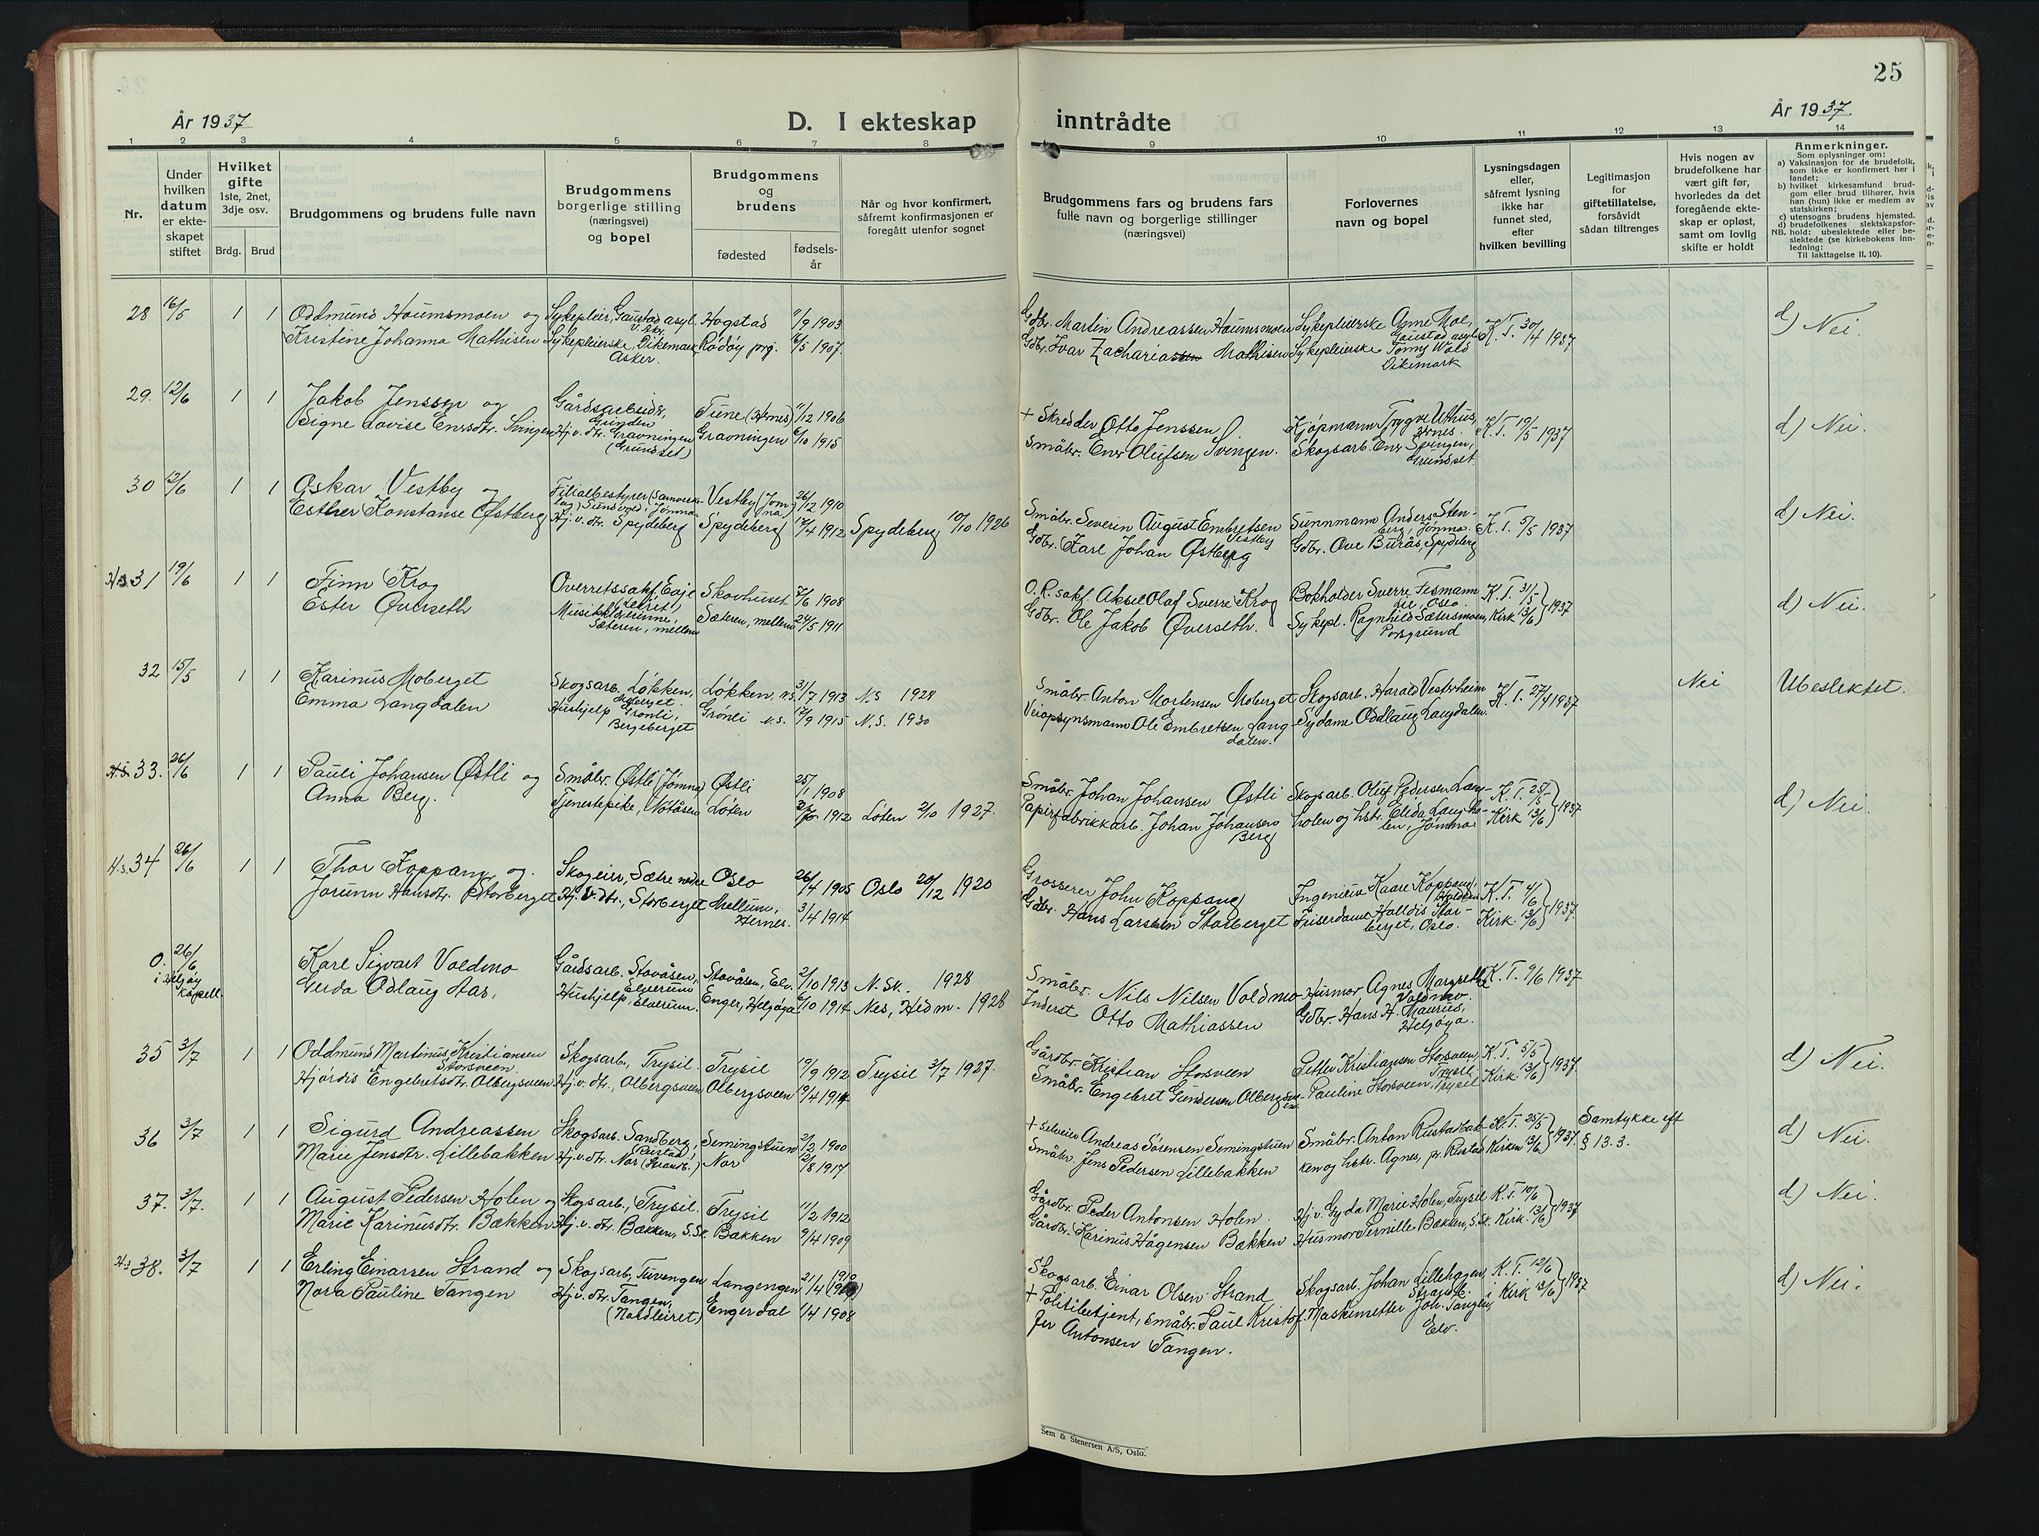 25
År 1937
D. I ekteskap inntrådte
År 1937
1 2 3 4 5 6 7 8 9 10 11 12 13 14
Nr.
Under hvilken datum er ekteskapet stiftet
Hvilket gifte 1ste, 2net, 3dje osv.
Brdg. Brud
Brudgommens og brudens fulle navn
Brudgommens borgerlige stilling (næringsvei) og bopel
Brudgommens og brudens
fødested fødselsår
Når og hvor konfirmert, såfremt konfirmasjonen er foregått utenfor sognet
Brudgommens fars og brudens fars fulle navn og borgerlige stillinger (næringsvei)
Forlovernes navn og bopel
Lysningsdagen eller, såfremt lysning ikke har funnet sted, efter hvilken bevilling
Legitimasjon for giftetillatelse, forsåvidt sådan tiltrenges
Hvis nogen av brudefolkene har vært gift før, hvorledes da det foregående ekteskap er opløst, samt om lovlig skifte er holdt
Anmerkninger.
Som oplysninger om:
a) Vaksinasjon for de brudefolk, som ikke er konfirmert her i landet;
b) hvilket kirkesamfund brudgom eller brud tilhører, hvis han (hun) ikke er medlem av statskirken;
c) utensogns brudens hjemsted.
d) brudefolkenes slektskapsforhold: ubeslektede eller beslektede (se kirkebokens innledning:
NB.
Til Iakttagelse II. 10).
28 16/5 1 1 Oddmund Houmsmoen og Sykepleier, Gaustad asyl V. Aker Hogstad 9/9 1903 Gdbr. Martin Andreassen Houmsmoen Sykepleierske Agne Moe, Gaustad asyl K. T. 30/4 1937 d) Nei.
Kristine Johanna Mathisen Sykepleierske, Dikemark Asker. Rødøy prg. 6/5 1907. Gdbr. Ivar Zachariassen Mathisen Sykepleierske Tonny Wold Dikemark
29. 12/6 1 1 Jakob Jenssen og Gårdsarbeider, Gunden Tune (Hernes) 11/12 1906 + Skredder Otto Jenssen Kjøpmann Trygve Uthus, Hernes. K. T. 19/5 1937 d) Nei.
Signe Lovise Enersdtr. Svingen Hj. v. dtr. Gravningen (Grundset) Gravningen 6/10 1915 Småbr. Ener Olufsen Svingen. Skogsarb. Ener Svingen, Grundset
30 12/6 1 1 Oskar Vestby og Filialbestyrer (Samvirkelag) Sundvold, Jømna Vestby (Jømna) 26/12 1910 Småbr. Severin August Embretsen Vestby Sunnmann Anders Stenberg, Jømna. K. T. 5/5 1937 d) Nei.
Esther Konstanse Østberg Hj. v. dtr. Spydeberg Spydeberg 17/4 1912 Spydeberg 10/10 1926 Gdbr. Karl Johan Østberg Gdbr. Ove Burås, Spydeberg
H.s. 31 19/6 1 1 Finn Krog Overrettssakf. Skovhuset 7/6 1908 O. R. sakf. Aksel Olaf Sverre Krog Bokholder Sverre Oslo. K. T. 31/5 1937 d) Nei.
Ester Øverseth Musiklærerinne, Sæteren, mellem Sæteren, mellem 24/5 1911 Gdbr. Ole Jakob Øverseth. Sykepl. Ragnhild Sætersmoen, Porsgrund Kirk 13/6
32 15/5 1 1 Karinus Moberget Skogsarb. Løkken, Moberget. Løkken, n.s. 31/7 1913 N.S. 1928 Småbr. Anton Mortensen Moberget Skogsarb. Harald Vesterheim K. T. 27/4 1937 Nei Ubeslektet.
Emma Langdalen Hushjelp Grønli, Bergeberget Grønli n.s. 17/9 1915 N.S. 1930 Veiopsynsmann Ole Embretsen Langdalen. Sydame Oddlaug Langdalen.
H.s. 33. 26/6 1 1 Pauli Johansen Østli og Småbr. Østli (Jømna) Østli 25/1 1908 Småbr. Johan Johansen Østli Skogsarb. Oluf Pedersen Langholen og hstr. Elida Langholen, Jømna K. T. 25/5 1937 d) Nei.
Anna Berg. Tjenestepike, Notåsen Løten 1912 Løten 2/10 1927. Papirfabrikkarb. Johan Johansen Berg Kirk 13/6
H.s. 34 26/6 1 1 Thor Koppang og Skogeier, Sætre nedre Oslo 26/4 1905 Oslo 20/12 1920 Grosserer John Koppang Ingeniør Kaare Koppang, Halden K. T. 4/6 1937
Jorunn Hansdtr. Storberget Hj. v. dtr., Storberget Mellum, Hernes. 3/4 1914 Gdbr. Hans Larssen Storberget Friserdame Halldis Storberget, Oslo. Kirk 13/6
0. 26/6 i Helgøy kapell. Karl Sigvart Voldmo Gårdsarb. Stavåsen, Elverum Stavåsen, Elv. 2/10 1913 N. Sk. 1928 Småbr. Nils Nilsen Voldmo Husmor Agnes Margrethe Voldmo. K. T. 9/6 1937
Gerda Odlaug Aas, Hushjelp, Elverum. Enger, Helgøya 6/10 1914 Nes, Hedm. 1928 Inderst Otto Mathiassen Gdbr. Hans H. Maurud, Helgøya.
35 3/7 1 1 Oddmund Martinus Kristiansen Storsveen Skogsarb., Trysil. Trysil 19/9 1912 Trysil 3/7 1927. Gårdbr. Kristian Storsveen Petter Kristiansen Storsveen, Trysil K. T. 5/5 1937 d) Nei.
Hjørdis Engebretsdtr. Olbergsveen Hj. v. dtr., Olbergsveen Olbergsveen 19/4 1914 Småbr. Engebret Gundersen Olbergsveen. Pauline Storsveen, Trysil Kirk. 13/6
36 3/7 1 1 Sigurd Andreassen Skogsarb. Sandberg, (Rustad) Semingstuen 2/2 1900 + Selveier Andreas Sörensen Semingstuen Småbr. Anton Rustadbakken og hstr. Agnes, pr. Rustad K. T. 25/5 1937. Samtykke eft § 13.3. d) Nei.
Marie Jensdtr. Lillebakken Hj. v. dtr. Nor (Strandb.) Nor 12/8 1917 Småbr. Jens Pedersen Lillebakken Kirken 13/6
37. 3/7. 1 1 August Pedersen Holen og Skogsarb., Trysil. Trysil 11/2 1912 Gårdbr. Peder Antonsen Holen. Hj. v. Gyda Marie Holen, Trysil K. T. 10/6 1937 d) Nei.
Marie Karinusdtr. Bækken Hj. v. dtr. Bækken, S.Sk. Bækken 9/4 1909 Gårdbr. Karinus Hågensen Bækken Husmor Pernille Bækken, S.Sk. Kirk. 13/6
H.s 38. 3/7 1 1 Erling Einarsen Strand og Skogsarb., Tuvengen Langengen 21/4 1910 Skogsarb. Einar Olsen Strand Skogsarb. Johan Lillehagen, Strandb. K. T. 12/6 1937 d) Nei.
Nora Pauline Tangen Hj. v. dtr. Tangen, (Nordleiret) Engerdal 1/4 1908 + Politibetjent, Småbr. Paul Kristoffer Antonsen Tangen. Maskinsetter Joh. Tangen, Elv. Kirk 13/6
Sem & Stenersen A/S, Oslo.